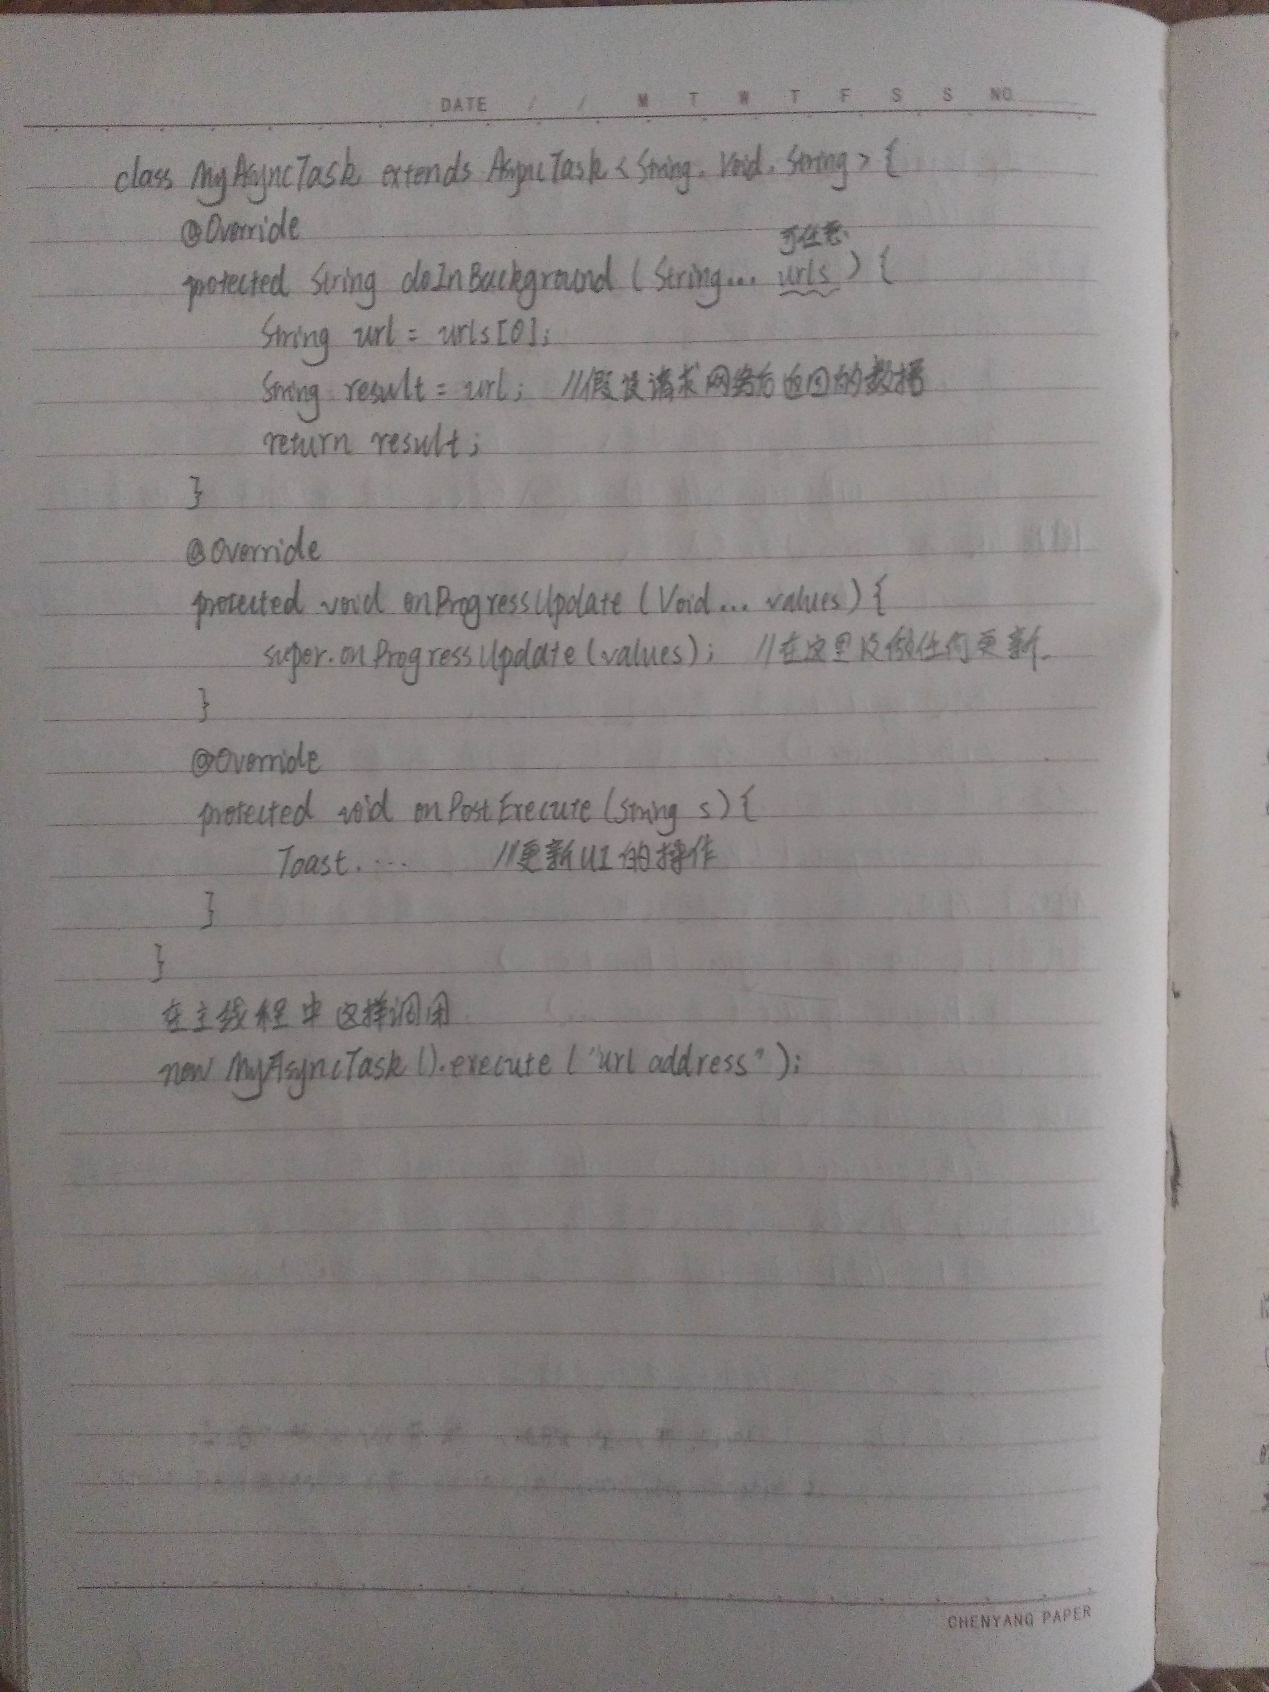 DATE / / M T W T F S S NO
class MyAsyncTask extends AsyncTask < String, Void, String > {
@Override
可任意
protected String doInBackground ( String... urls ) {
String url = urls[0];
String result = url; //假设请求网络后返回的数据
return result;
}
@Override
protected void onProgressUpdate ( Void... values ) {
super.onProgressUpdate (values); //在这里没做任何更新.
}
@Override
protected void onPostExecute (String s) {
Toast. ... //更新UI的操作
}
}
在主线程中这样调用
new MyAsyncTask ().execute ( "url address" );
CHENYANG PAPER